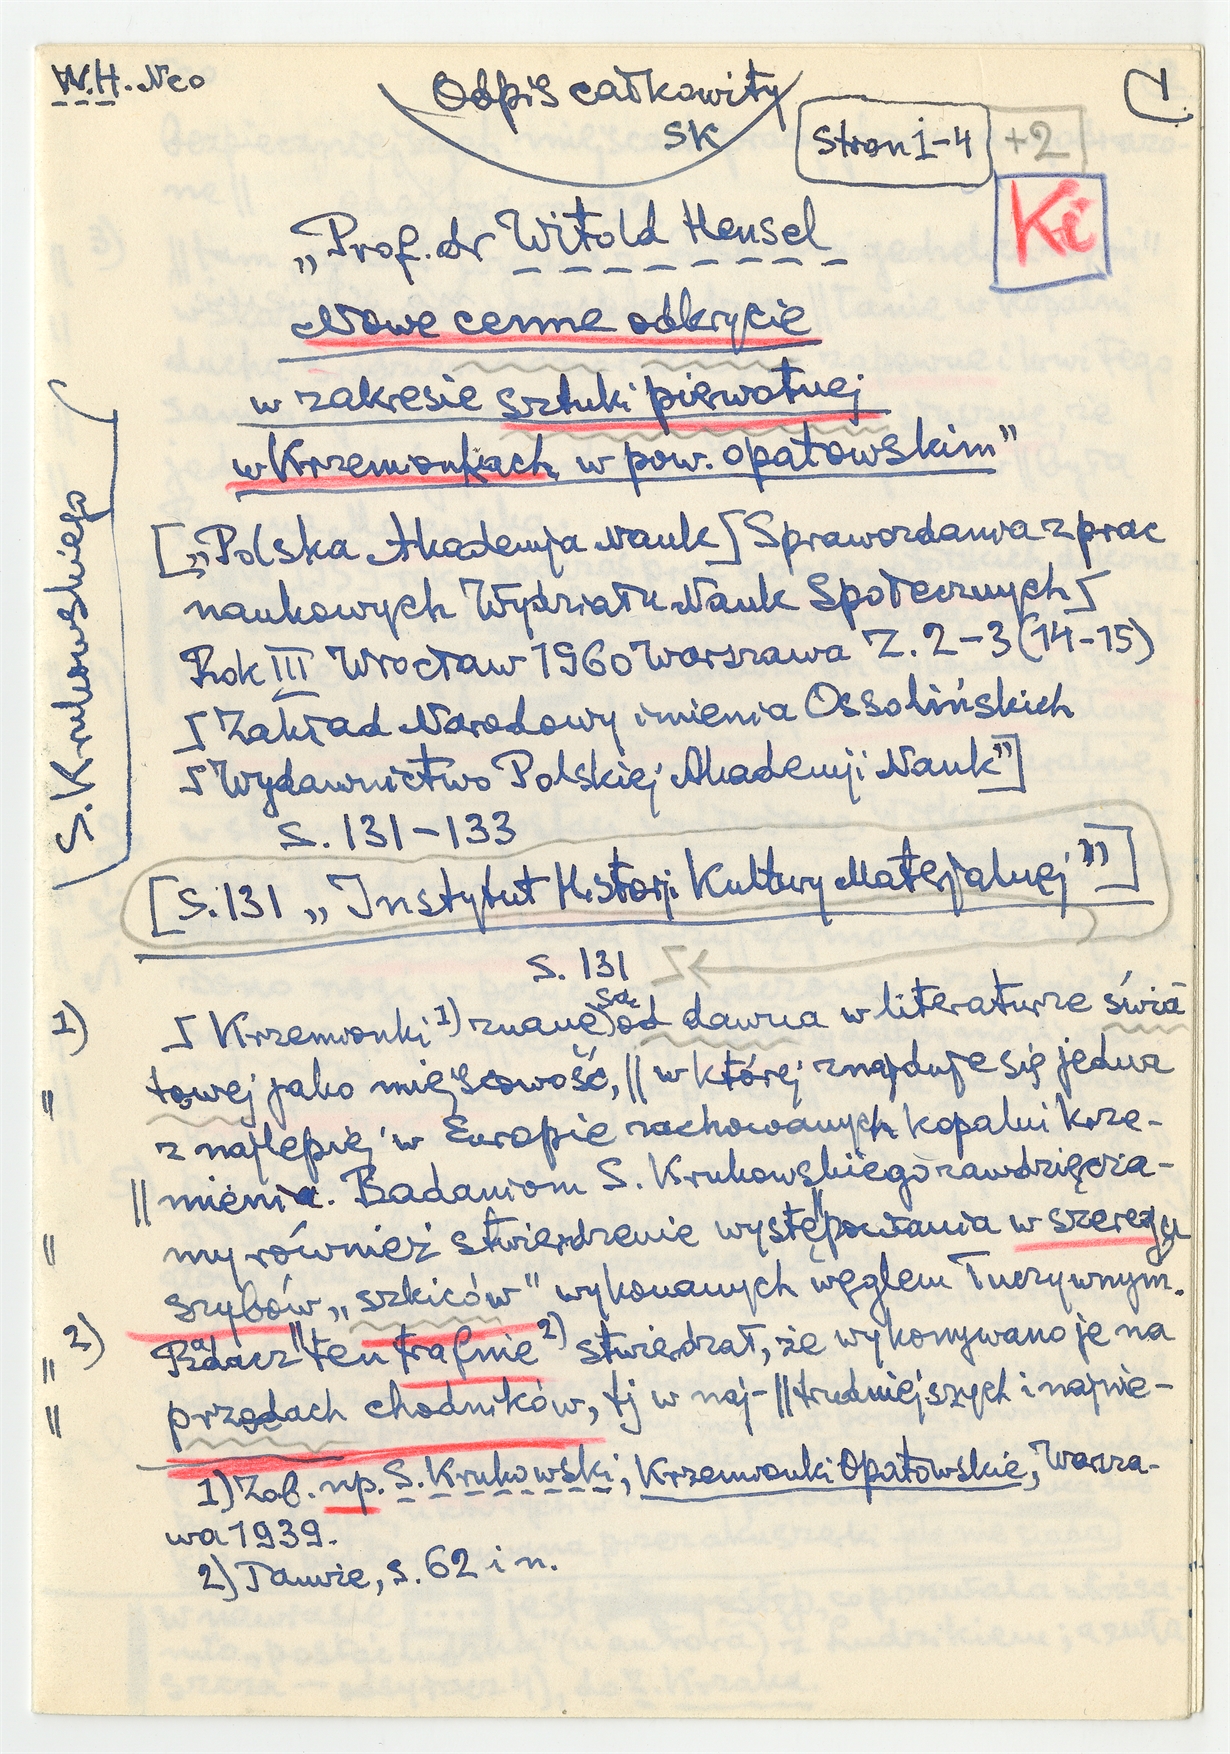 W.H. Neo
Odpis całkowity
SK
1
Stron 1-4 +2
Ki
„Prof. dr Witold Hensel
Nowe cenne odkrycie
w zakresie sztuki pierwotnej
w Krzemionkach, w pow. opatowskim"
[„Polska Akademja Nauk ⌈ Sprawozdania z prac
naukowych Wydziału Nauk Społecznych ⌈
Rok III Wrocław 1960 Warszawa Z. 2-3 (14-15)
⌈ Zakład Narodowy imienia Ossolińskich
⌈ Wydawnictwo Polskiej Akademji Nauk"]
s. 131-133
S. Krukowskiego
[S. 131 „Instytut Historji Kultury Materjalnej"]
s. 131
1) ⌈ Krzemionki 1) znane są od dawna w literaturze świa-
" towej jako miejscowość, || w której znajduje się jedna
z najlepiej w Europie zachowanych kopalni krze-
|| mienia. Badaniom S. Krukowskiego zawdzięcza-
" my również stwierdzenie występowania w szeregu
szybów „szkiców" wykonanych węglem łuczywnym.
" 2) Badacz ten trafnie 2) stwierdzał, że wykonywano je na
" przodach chodników, tj w naj-||trudniejszych i najnie-
1) Zob. np. S. Krukowski, Krzemionki Opatowskie, Warsza-
wa 1939.
2) Tamże, s. 62 i n.